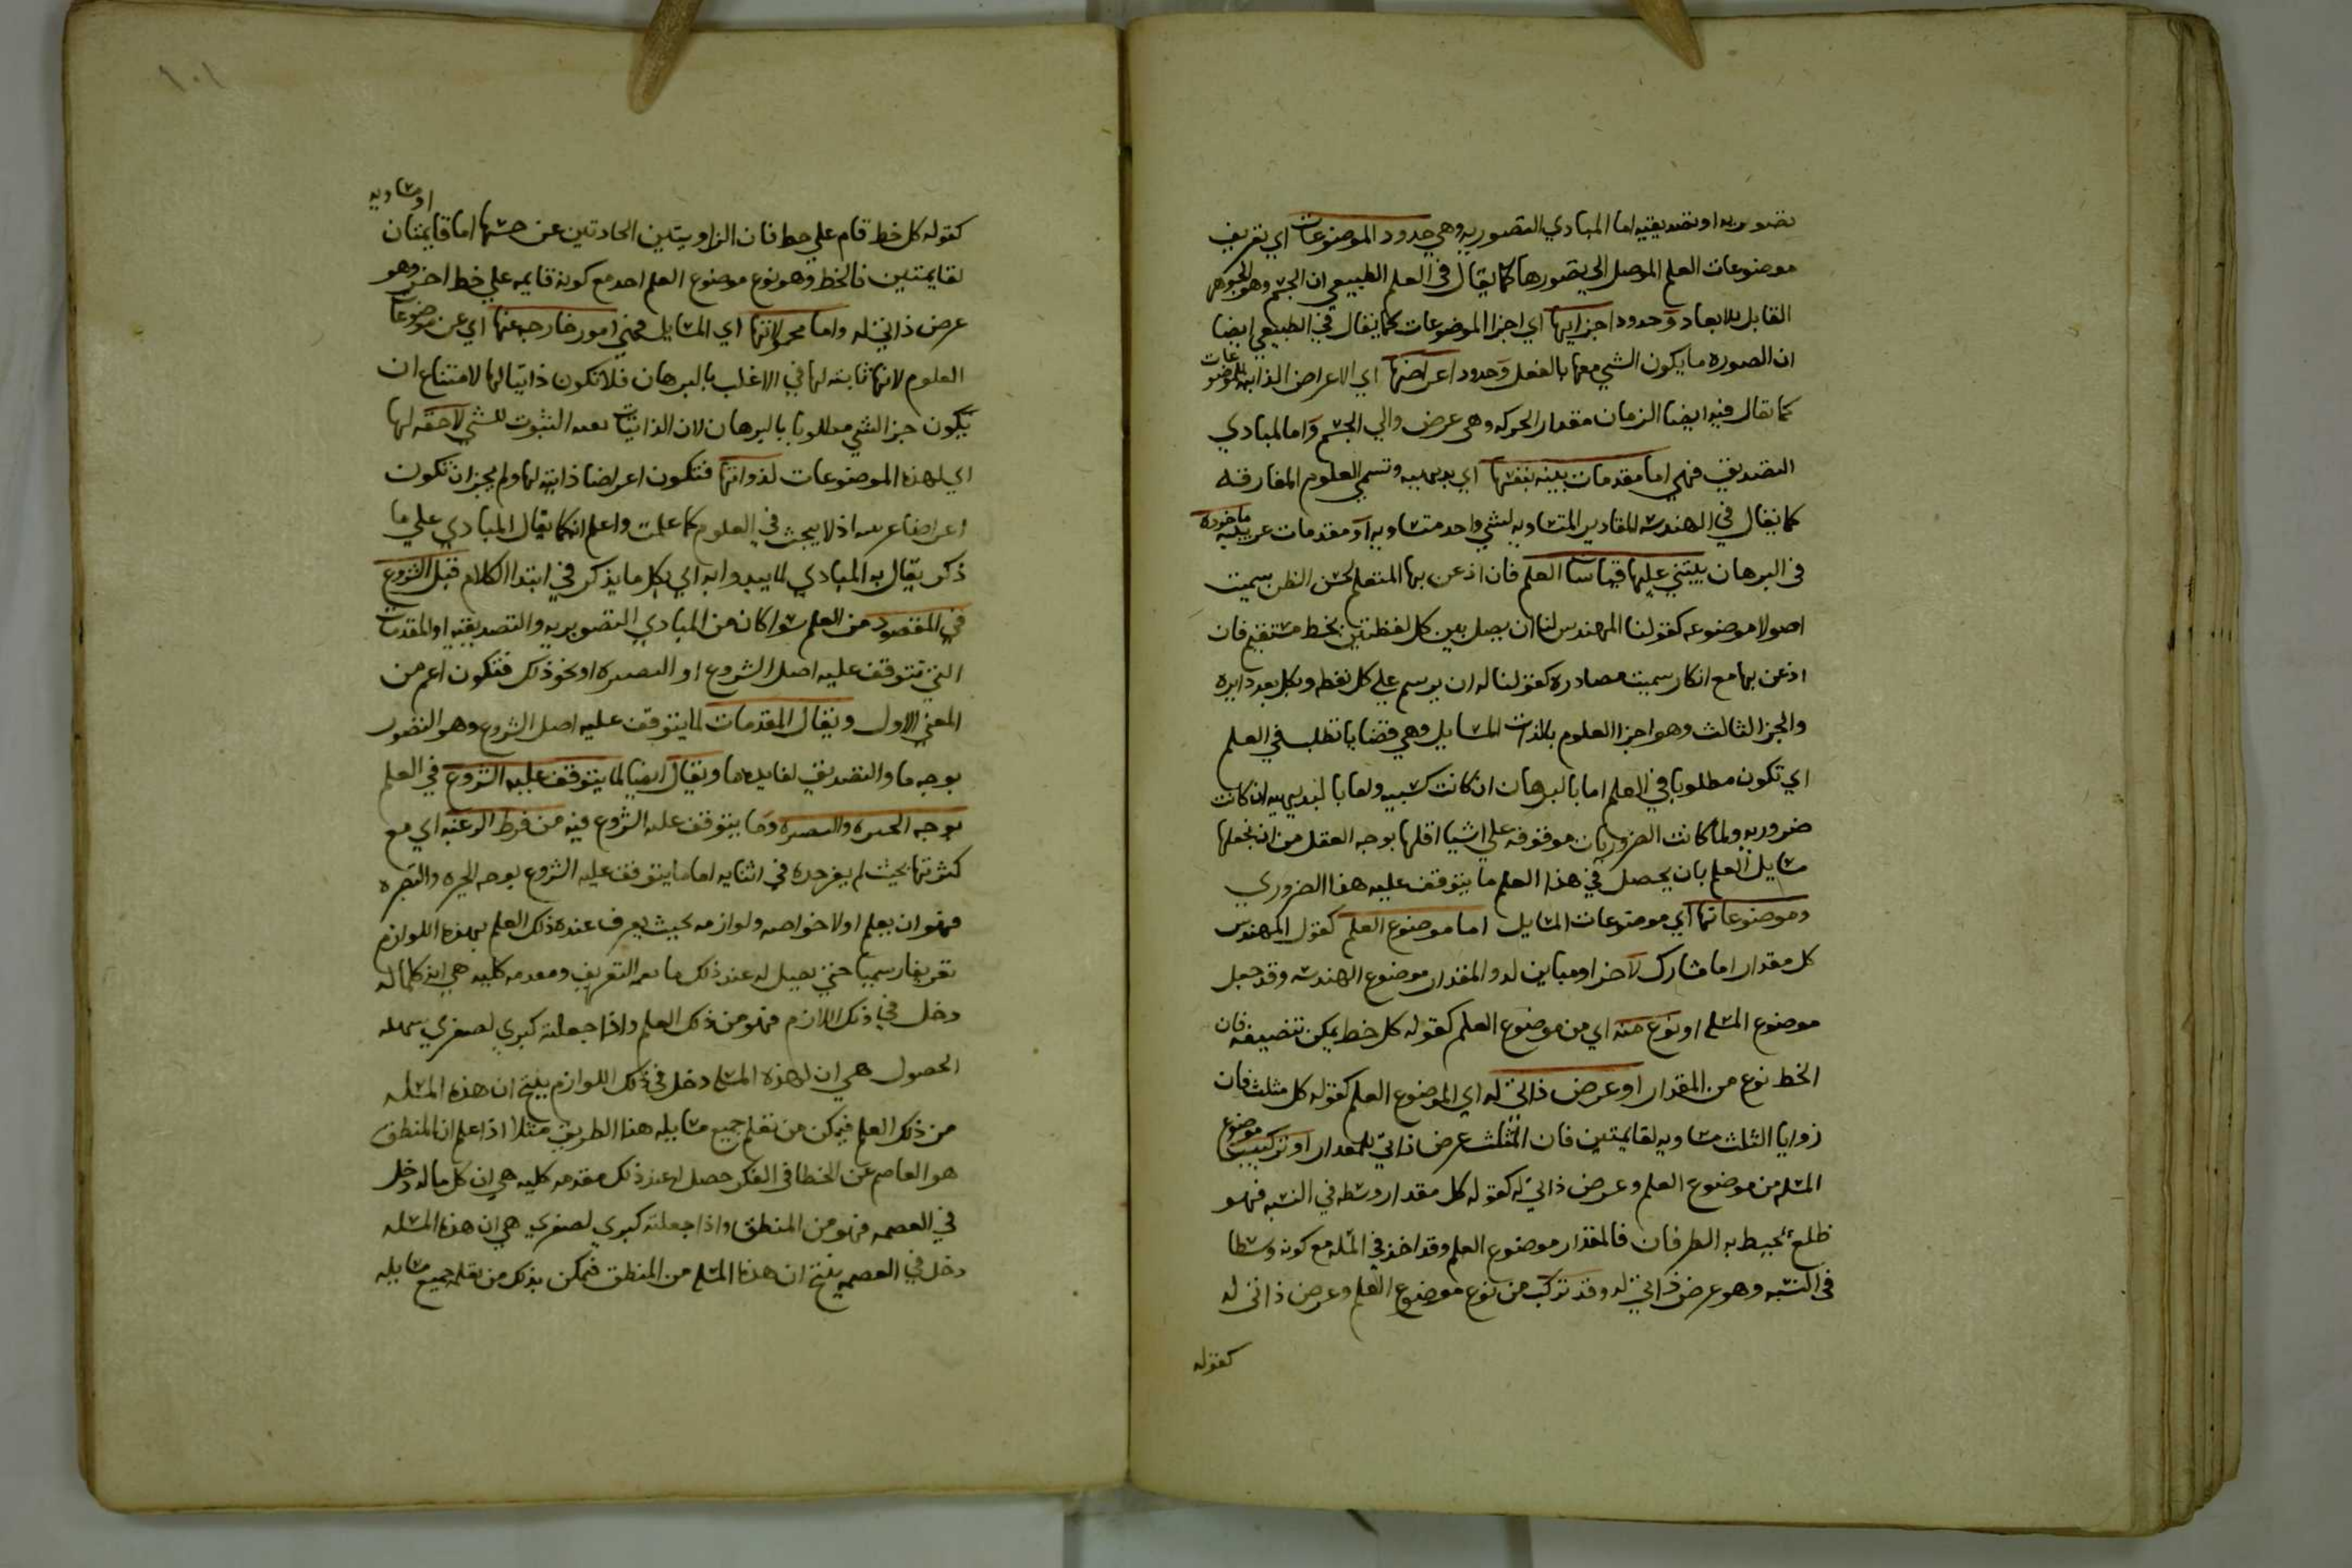 تصوريه او تصديقيه اما المبادي التصوريه وهي حدود الموضوعات اي تعريف
موضوعات العلم الموصل الي تصورها كما يقال في العلم الطبيعي ان الجسم وهو الجوهر
القابل للابعاد وحدود اجزايها اي اجزا الموضوعات كما يقال في الطبيعي ايضا
ان الصوره ما يكون الشي معها بالفعل وحدود اعراضها اي الاعراض الذاتيه للموضوعات
كما يقال فيه ايضا الزمان مقدار الحركه وهي عرض والي الجسم واما المبادي
التصديق فهي اما مقدمات بينه بنفسها اي بديهيه وتسمي العلوم المفارقه
كما يقال في الهندسه المقادير المتساويه لشي واحد متساويه او مقدمات ماخوذه
في البرهان يبتني عليها قياسات العلم فان اذعن بها المتعلم لحسن الظن سميت
اصولا موضوعه كقولنا المهندس لنا ان يصل بين كل نقطتين بخط مستقيم فان
اذعن بها مع انكار سميت مصادره كقولنا له ان يرسم علي كل نقطه وبكل بعد دايره
والجز الثالث وهو اجزا العلوم بالذات المسايل وهي قضايا تطلب في العلم
اي تكون مطلوبا في العلم اما بالبرهان ان كانت كسبيه واما بالبديهيه ان كانت
ضروريه ولما كانت الضروريات موقوفه علي اشيا اقلها بوجه العقل من ان يجعلها
مسايل العلم بان يحصل في هذا العلم ما يتوقف عليه هذا الضروري
وموضوعاتها اي موضوعات المسايل اما موضوع العلم كقول المهندس
كل مقدار اما مشارك لاخر او مباين له والمقدار موضوع الهندسه وقد جعل
موضوع المسله او نوع منه اي من موضوع العلم كقوله كل خط يمكن تنصيفه فان
الخط نوع من المقدار او عرض ذاتي له اي الموضوع العلم كقوله كل مثلث فان
زوايا الثلث متساويه لقايمتين فان المثلث عرض ذاتي للمقدار او تركيب موضوع
المسله من موضوع العلم وعرض ذاتي له كقوله كل مقدار وسطه في النسبه فهو
ظلع يحيط به الطرفان فالمقدار موضوع العلم وقد اخذ في المسله مع كونه وسطا
في النسبه وهو عرض ذاتي له وقد تركب من نوع موضوع العلم وعرض ذاتي له
كقوله
١٠١
او متساويه
كقوله كل خط قام علي خط فان الزاويتين الحادثتين عن جنبيها اما قايمتان
لقايمتين فالخط وهو نوع موضوع العلم احد مع كونه قايمه علي خط اخر وهو
عرض ذاتي له واما محمولاتها اي المسايل فهي امور خارجه عنها اي عن موضوعات
العلوم لانها ثابته لها في الاغلب بالبرهان فلا تكون ذاتيا لها لامتناع ان
يكون جز الشي مطلوبا بالبرهان لان الذاتيات الثبوت للشي لاحقه لها
اي لهذه الموضوعات لذواتها فتكون اعراضا ذاتيه لها ولم يجز ان تكون
اعراضا غريبه اذ لا يبحث في العلوم كما علمت واعلم انه كما يقال المبادي علي ما
ذكر يقال به المبادي لما يبدوا به اي بكل ما يذكر في ابتدا الكلام قبل الشروع
في المقصود من العلم سوا كان من المبادي التصوريه والتصديقيه او المقدمات
التي تتوقف عليه اصل الشروع او البصيره او نحو ذلك فتكون اعم من
المعني الاول ويقال المقدمات لما يتوقف عليه اصل الشروع وهو التصور
بوجه ما والتصديق لفايده ما ويقال ايضا لما يتوقف عليه الشروع في العلم
بوجه الخبره والبصيره وما يتوقف عليه الشروع فيه من فرط الرغبه اي مع
كثرتها بحيث لم يفز جده في اثنايه اما ما يتوقف عليه الشروع بوجه الخبره والتبصره
فهو ان يعلم اولا خواصه ولوازمه بحيث يعرف عنده ذلك العلم بهذه اللوازم
تعريفا رسميا حتي يحصل له عند ذلك التعريف ومقدمه كليه هي ان كلما له
دخل في ذلك اللازم فهو من ذلك العلم واذا جعلته كبري لصغري سهله
الحصول هي ان لهذه المسله دخل في ذلك اللوازم ينتج ان هذه المسله
من ذلك العلم فيمكن من تعلم جميع مسايله هذا الطريق مثلا اذا علم ان المنطق
هو العاصم عن الخطا في الفكر حصل له عند ذلك مقدمه كليه هي ان كل ما له دخل
في العصمه فهو من المنطق واذا جعلته كبري لصغري هي ان هذه المسله
دخل في العصمه ينتج ان هذه المسله من المنطق فيمكن بذلك من تعلم جميع مسايله